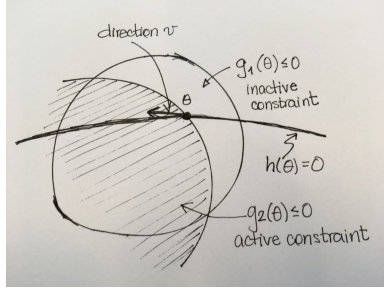 direction v
g₁(θ) ≤ 0
inactive
constraint
θ
h(θ) = 0
g₂(θ) ≤ 0
active constraint